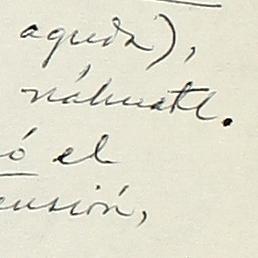 aguda),
náhuatl.
ó el
ensión,